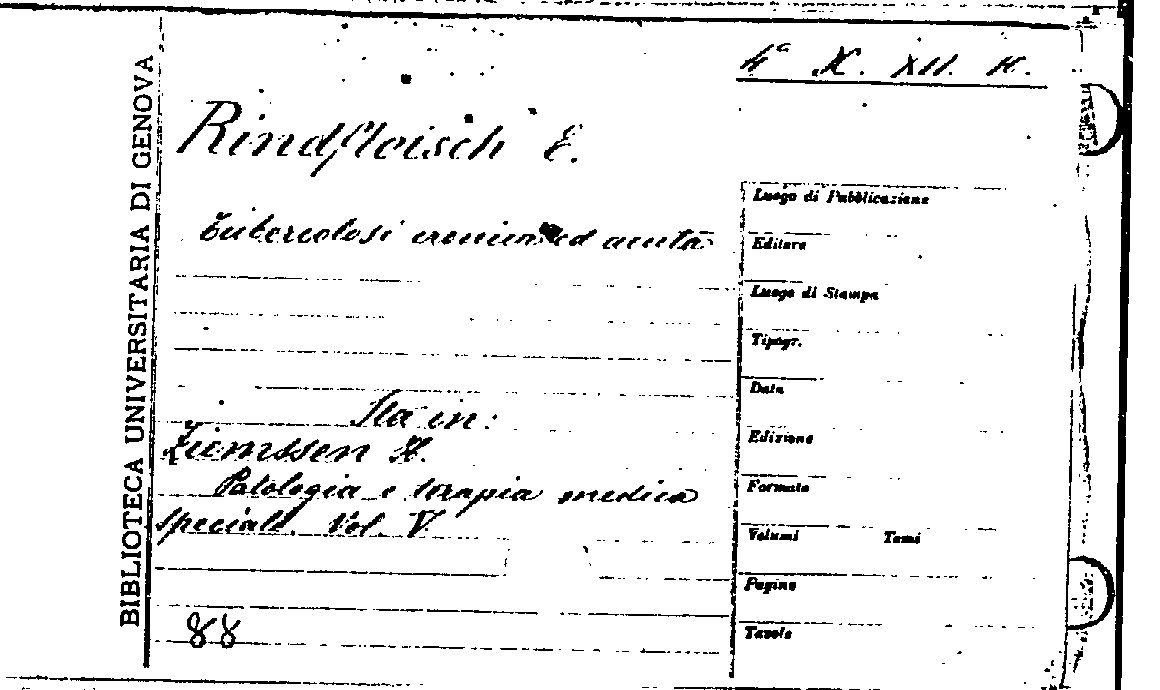 BIBLIOTECA UNIVERSITARIA DI GENOVA
4ª X. XII.
Rindfleisch E.
Tubercolosi cronica ed acuta
Sta in:
Ziemssen H.
Patologia e terapia medica
speciale. Vol. V
88
Luogo di Pubblicazione
Editore
Luogo di Stampa
Tipogr.
Data
Edizione
Formato
Volumi Tomi
Pagine
Tavole